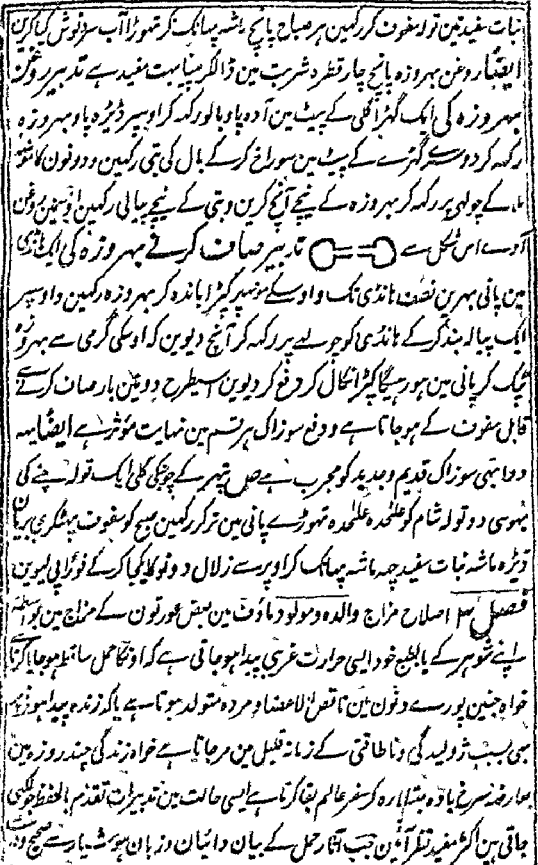 نبات سفید تین تولہ سفوف کر رکہین ہر صباح پانچ ماشہ پہانک کر تہوڑا آب سرد نوش کیا کرین
ایضًا روغن بہروزہ پانچ چار قطرہ شربت مین ڈالکر پینا بہت مفید ہے تدبیر روغن
بہروزہ کی ایک گہڑا گلی کے پیٹ مین آدہ پاؤ بالو رکہہ کر اوسپر ڈیڑہ پاؤ بہروزہ
رکہہ کر دوسرے گہڑے کے پیٹ مین سوراخ کرکے بال کی بتی رکہین و دونون کا منہ
ملا کے چولہی پر رکہہ کر بہروزہ کے نیچے آنچ کرین و بتی کے نیچے پیالی رکہین اوسمین روغن
آوے اس شکل سے تدبیر صاف کرنے بہروزہ کی ایک ہانڈی
مین پانی بہرین نصف ہانڈی تک و اوسکے مونہہ پر کپڑا باندہ کر بہروزہ رکہین و اوسپر
ایک پیالہ بند کرکے ہانڈی کو چولہے پر رکہہ کر آنچ دیوین کہ اوسکی گرمی سے بہروزہ
ٹپک کر پانی مین ہو رہیگا کپڑا نکال کر دفع کر دیوین اسیطرح دو تین بار صاف کرنے سے
قابل سفوف کے ہو جاتا ہے و دفع سوزاک ہر قسم مین نہایت مؤثر ہے ایضًا یہہ
دوا بہی سوزاک قدیم و جدید کو مجرب ہے پتہر کے چونہ کی کلی ایک تولہ چنے کی
بہوسی دو تولہ شام کو علٰحدہ علٰحدہ تہوڑے پانی مین تر کر رکہین صبح کو سفوف پہٹکری بریان
ڈیڑہ ماشہ نبات سفید چہہ ماشہ پہانک کر اوپر سے زلال دونو کا یکجا کرکے فورًا پی لیوین
فصل ۳ اصلاح مزاج والدہ و مولود ماؤف مین بعض عورتون کے مزاج مین بواسطہ
اپنے شوہر کے یا بالطبع خود ایسی حرارت غریبی پیدا ہو جاتی ہے کہ اونکا حمل ساقط ہو جایا کرتا
خواہ جنین پورے دنون مین ناقص الاعضا و مردہ متولد ہوتا ہے یا کہ زندہ پیدا ہو
بہی بسبب ژولیدگی و ناطاقتی کے زمانہ قلیل مین مر جاتا ہے خواہ زندگی چند روزہ مین
بعارضہ سرخ بادہ مبتلا رہ کر سفر عالم بقا کرتا ہے ایسی حالت مین تدبیرات تقدم بالحفظ جو کہی
جاتی ہین اکثر مفید نظر آئین جب آثار حمل کے بیان دائیان و زبان ہوشیار سے صحیح